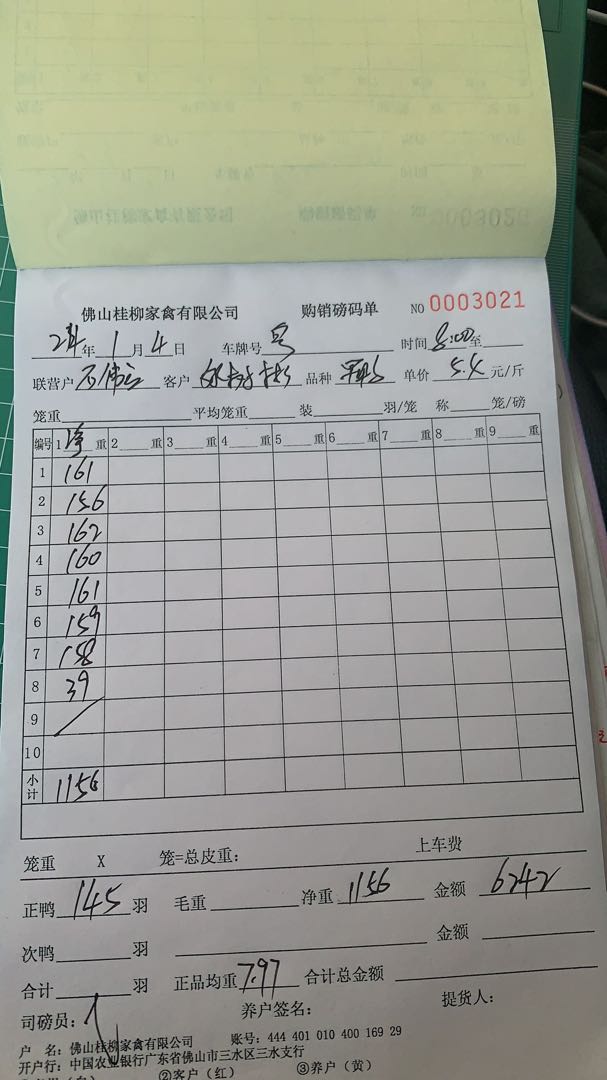 佛山桂柳家禽有限公司 购销磅码单 NO 0003021
24年 1月 4日 车牌号 号 时间 8:00至
联营户 客户 品种 单价 5.4 元/斤
笼重 平均笼重 装 羽/笼 称 笼/磅
编号 1净重 2 重 3 重 4 重 5 重 6 重 7 重 8 重 9 重
1 161
2 156
3 162
4 160
5 161
6 159
7 158
8 39
9
10
小计 1156
笼重 X 笼=总皮重: 上车费
正鸭 145 羽 毛重 净重 1156 金额 6242
次鸭 羽 金额
合计 羽 正品均重 7.97 合计总金额
司磅员: 养户签名: 提货人:
户 名: 佛山桂柳家禽有限公司 账号: 444 401 010 400 169 29
开户行: 中国农业银行广东省佛山市三水区三水支行
②客户(红) ③养户(黄)